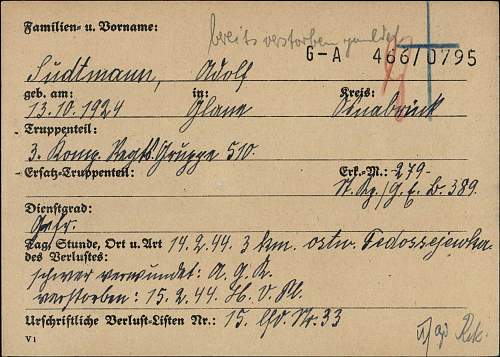 Familien- u. Vorname:
bereits verstorben gemeldet
G-A 466/0795
Südtmann, Adolf
geb. am: in: Kreis:
13.10.1924 Glane Osnabrück
Truppenteil:
3. Komp. Regts. Gruppe 510.
Ersatz-Truppenteil: Erk.-M.: -279-
St. Kp./G.E.B. 389.
Dienstgrad:
Gefr.
Tag, Stunde, Ort u. Art 14.2.44. 3 km. ostw. Fedossejewka
des Verlustes: schwer verwundet: A.G.K.
verstorben: 15.2.44. H.V.Pl.
Urschriftliche Verlust-Listen Nr.: 15. lfd. Nr. 33
V 1